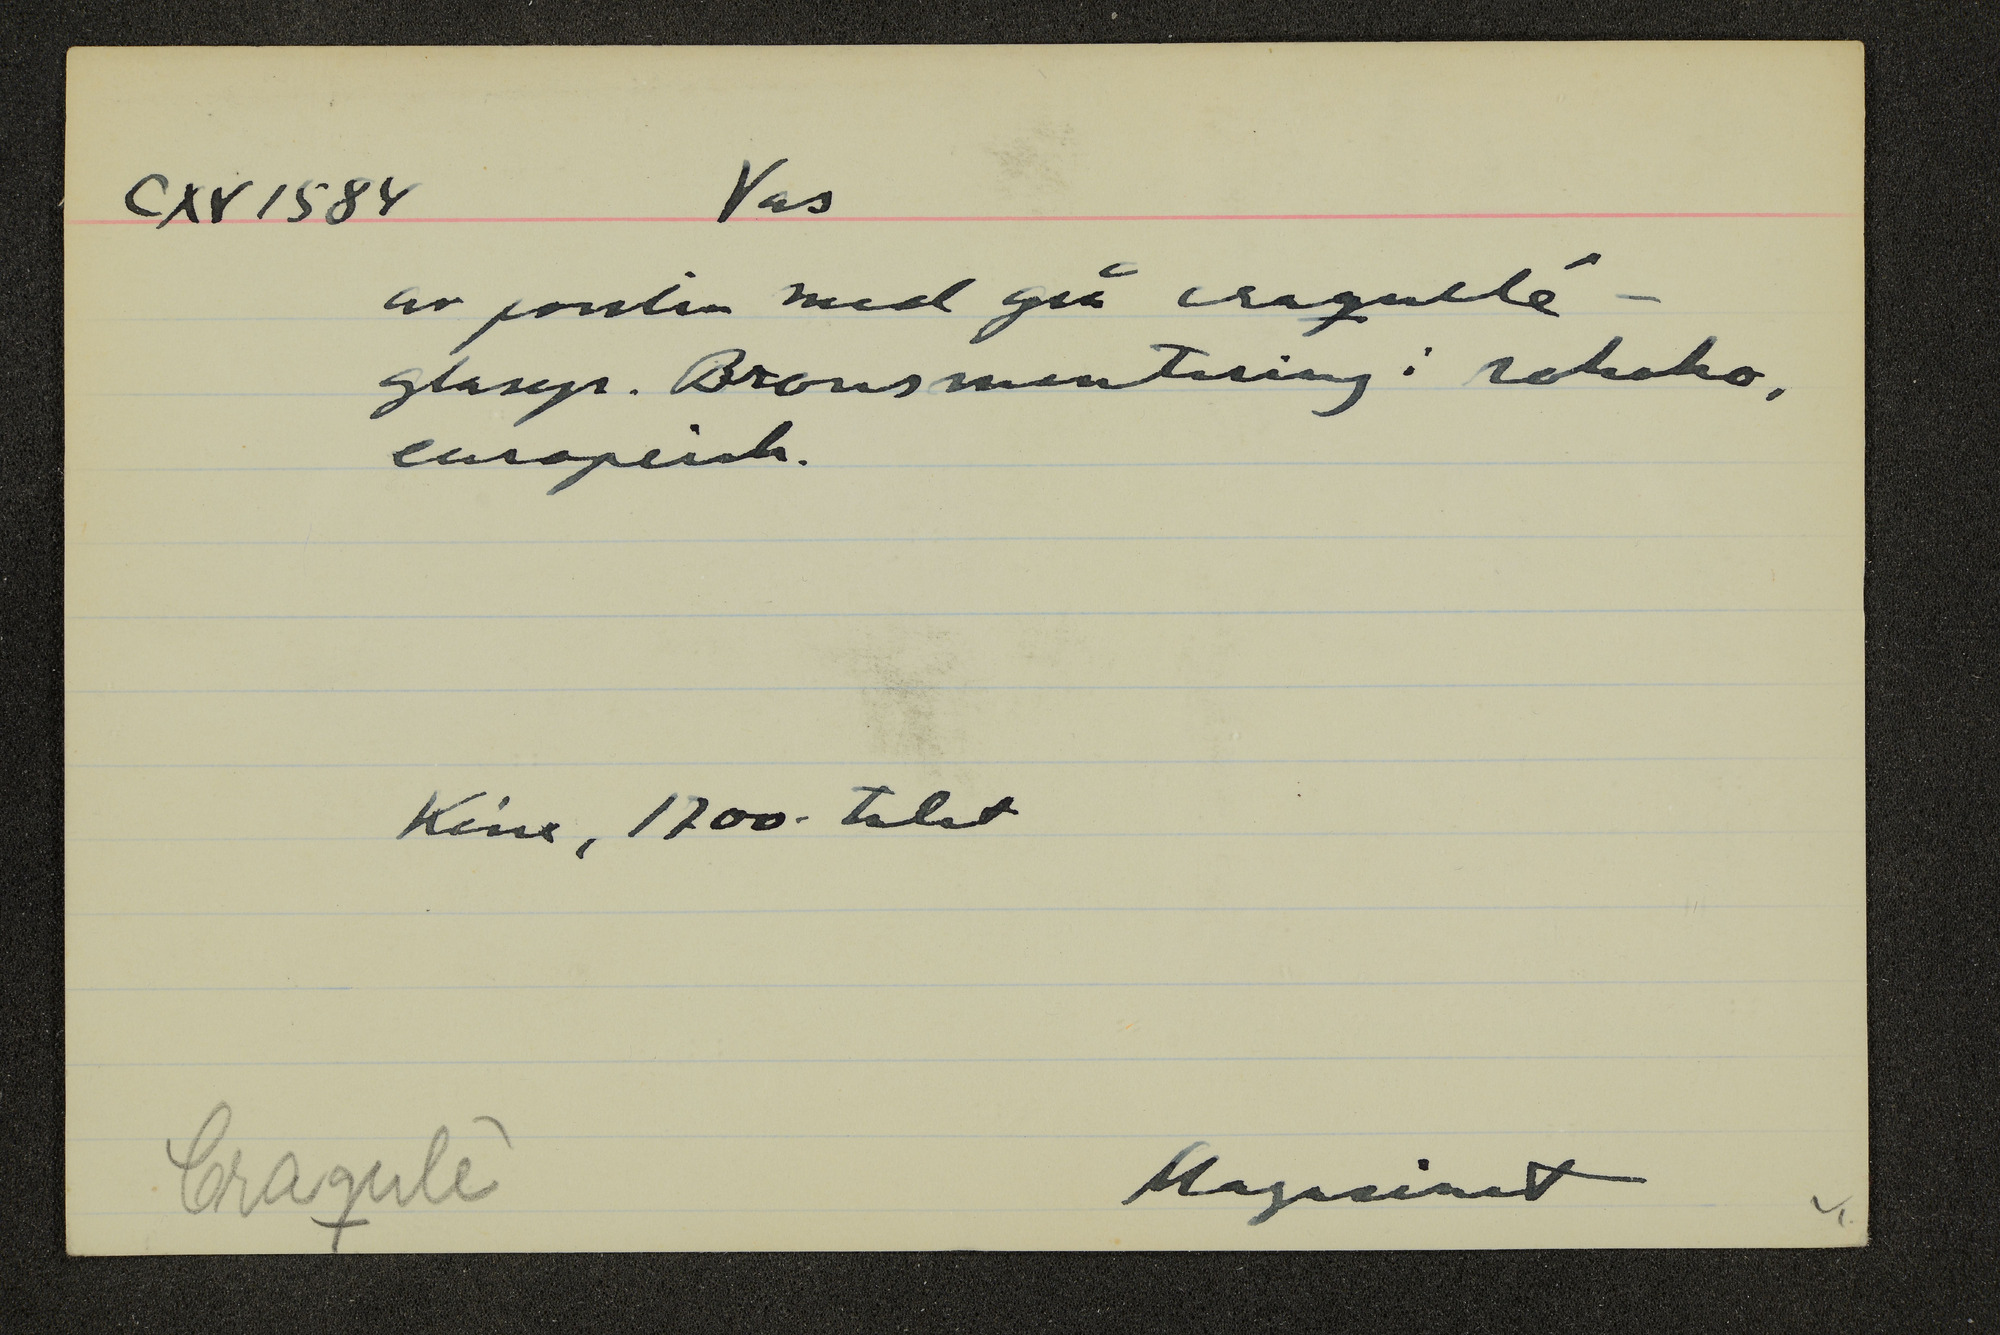 CXV 1584 Vas
av porslin med grå craquelé-
glasyr. Bronsmontering i rokoko,
europeisk.
Kina, 1700-talet
Craqulé
Magasinet